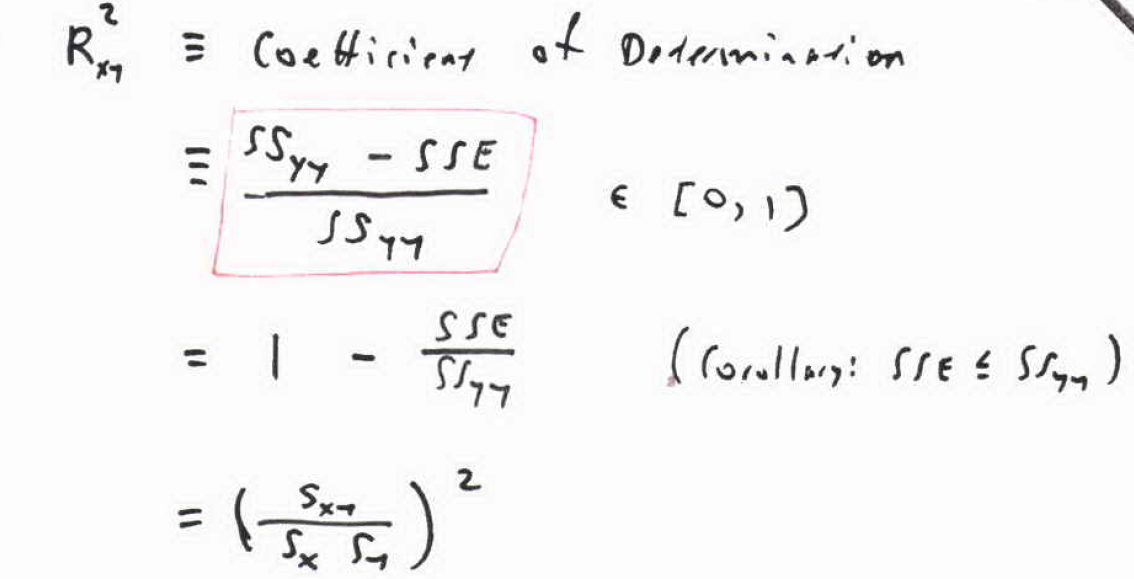 R²ₓᵧ ≡ Coefficient of Determination
≡ (SSyy - SSE) / SSyy ∈ [0, 1]
= 1 - SSE / SSyy (Corollary: SSE ≤ SSyy)
= (Sxy / (Sx Sy))²